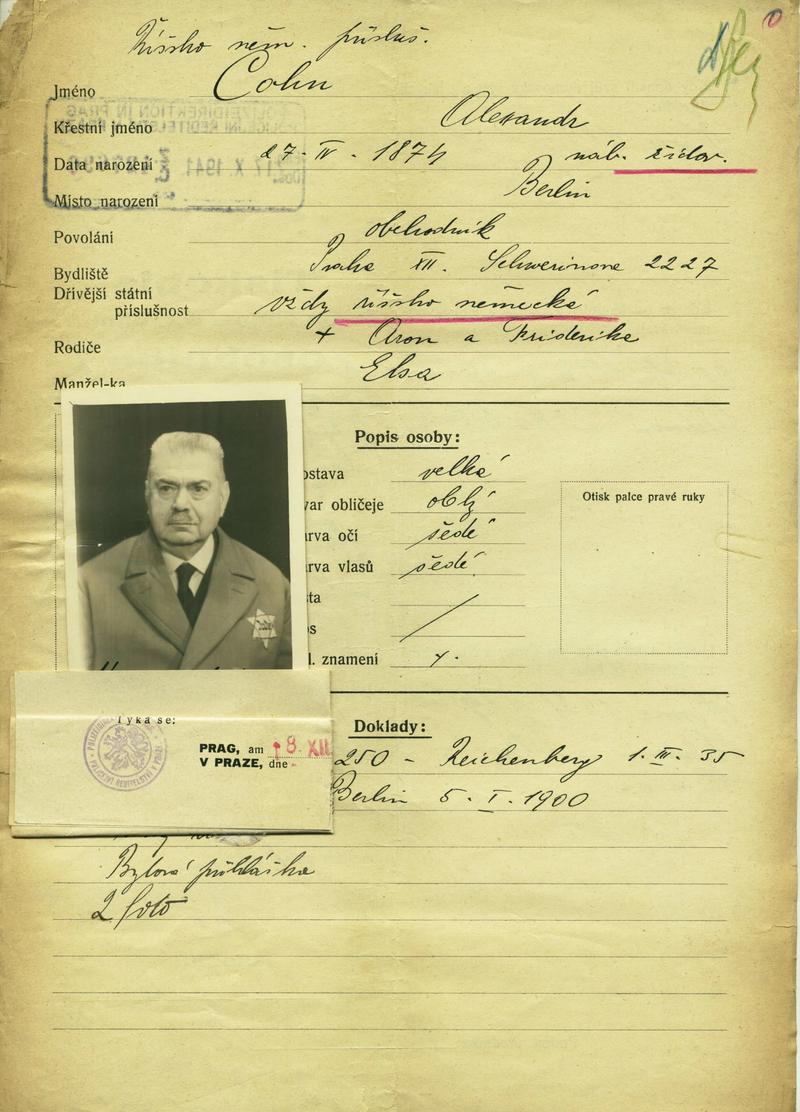 Říšsko něm. přísluš.
Jméno Cohn
Křestní jméno Alexandr
Data narození 27 - IV - 1874 náb. židov.
Místo narození Berlin
Povolání obchodník
Bydliště Praha XII. Schwerinova 2227
Dřívější státní
příslušnost vždy říšsko německá
Rodiče + Aron a Friderika
Manžel-ka Elsa
Popis osoby:
ostava velká
var obličeje oblý
Otisk palce pravé ruky
arva očí šedé
arva vlasů šedé
sta
os
l. znamení
Týká se:
Doklady:
PRAG, am 8. XII
V PRAZE, dne
250 - Reichenberg 1. III. 35
Berlin 5. I. 1900
Bytová přihláška
2 foto